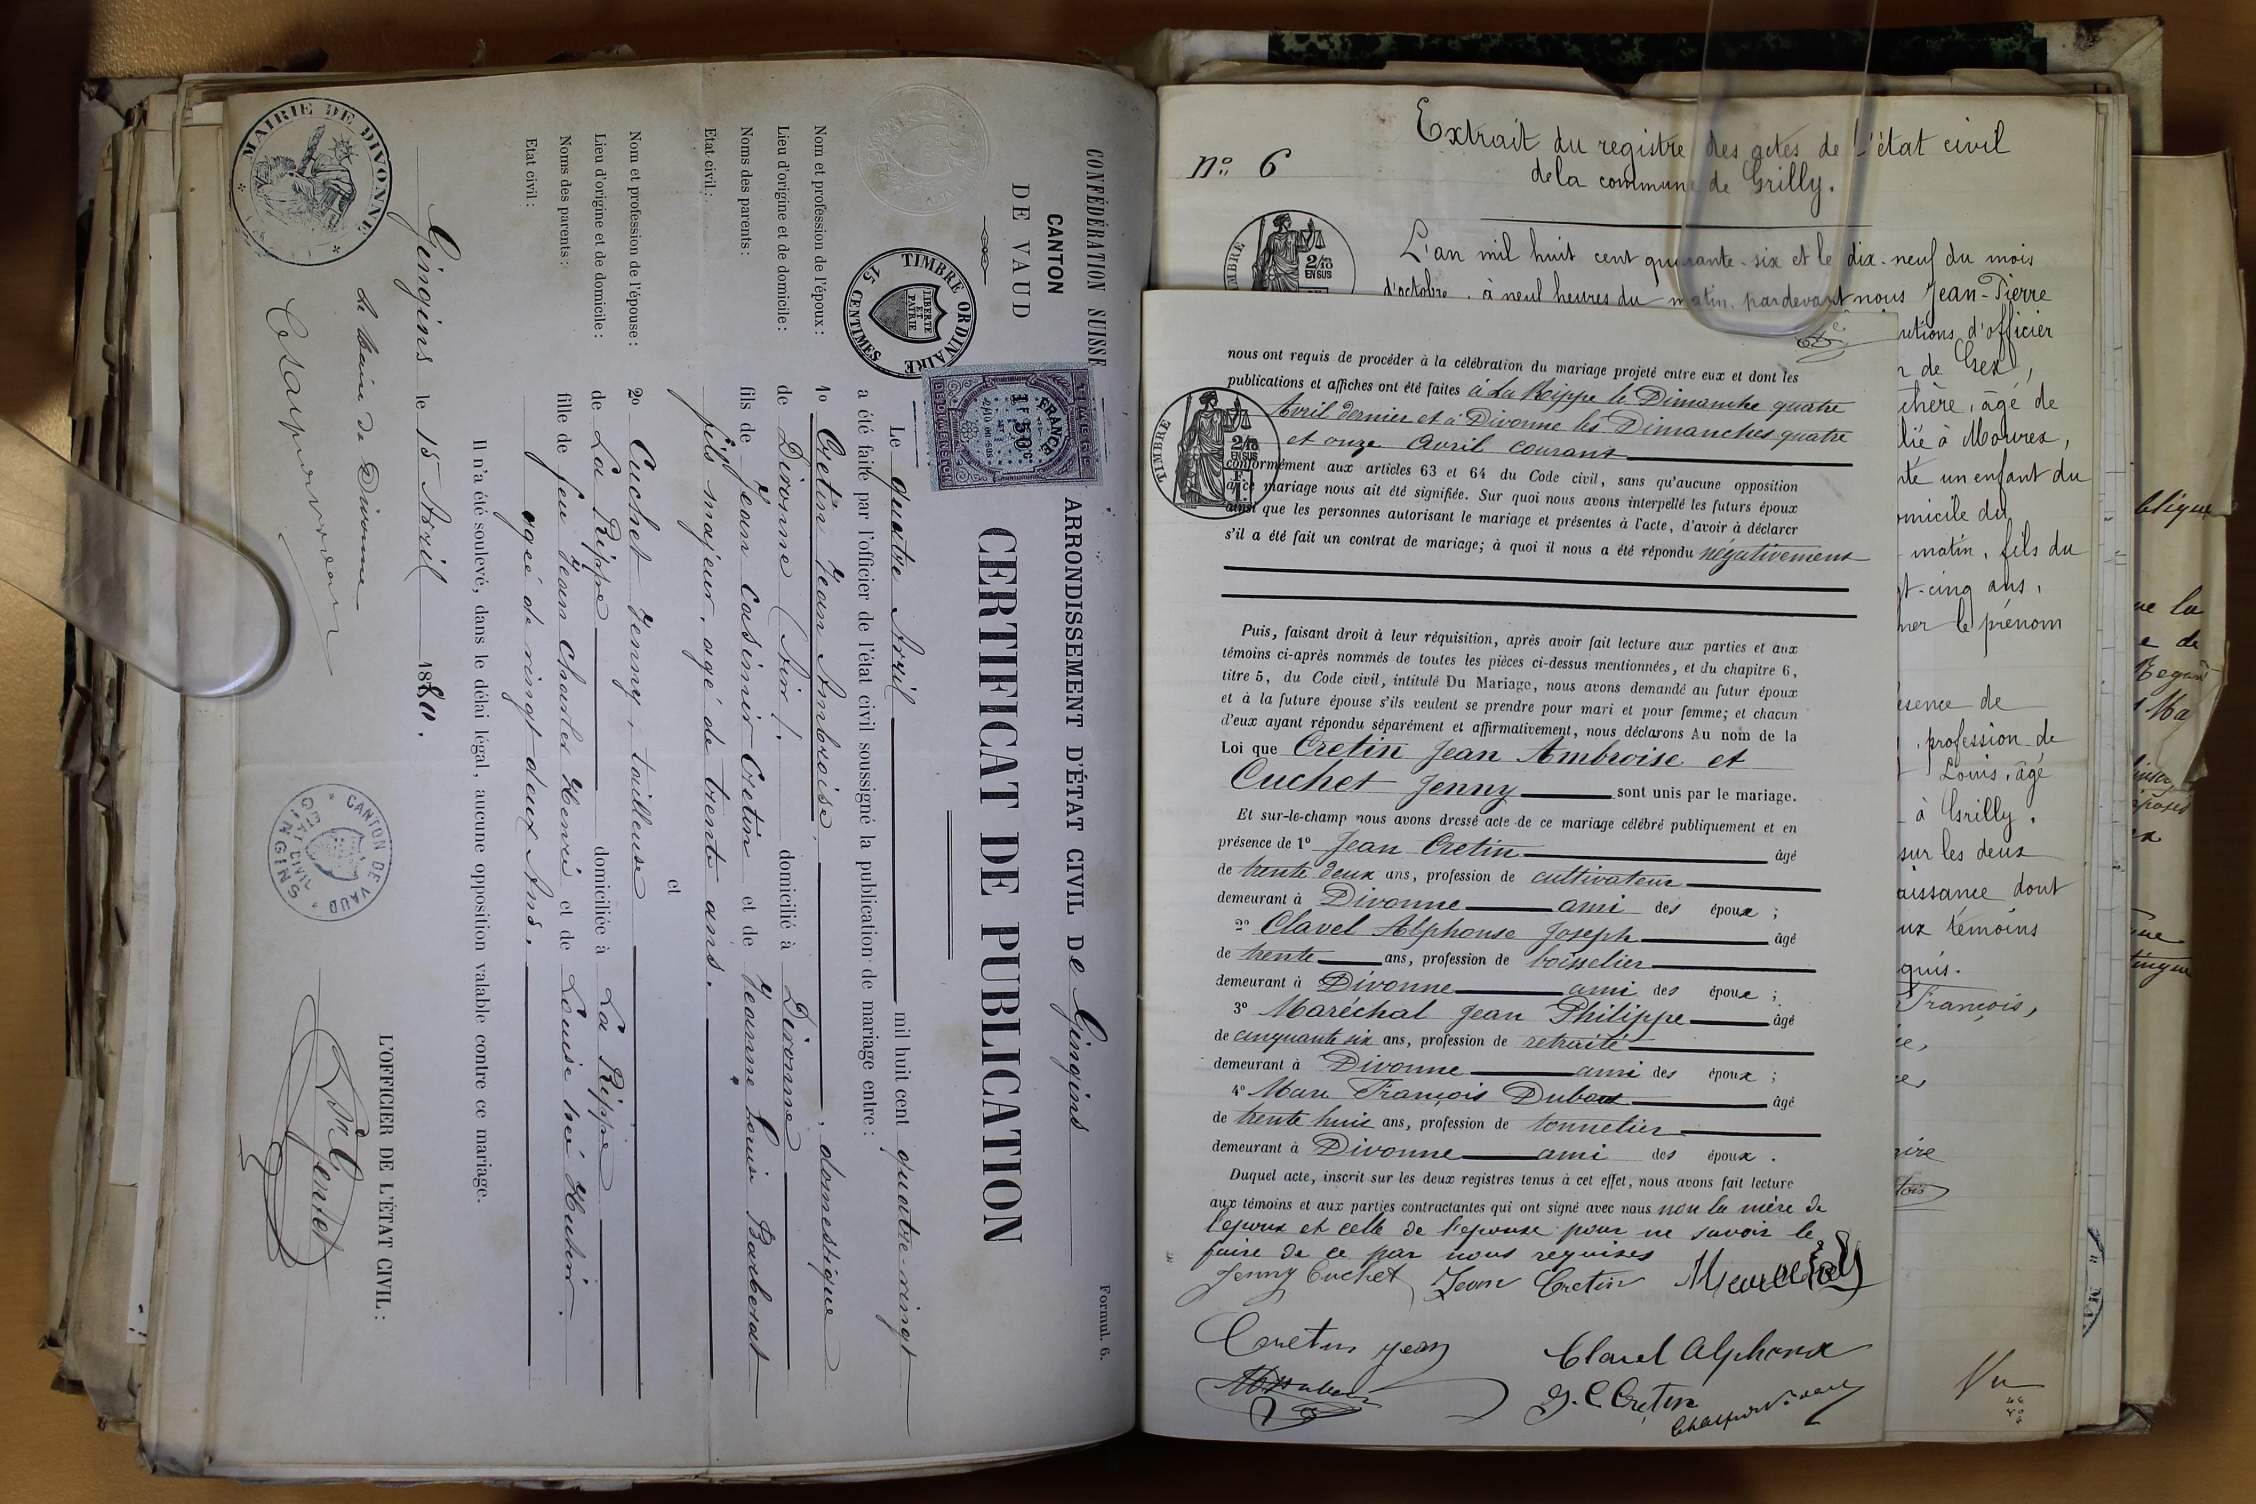 CONFÉDÉRATION SUISSE
Formul. 6.
CANTON
DE VAUD
ARRONDISSEMENT D'ÉTAT CIVIL DE Gingins
CERTIFICAT DE PUBLICATION
TIMBRE ORDINAIRE
15 CENTIMES
LIBERTE
ET
PATRIE
TIMBRE
FRANCE
1F50c
DE DIMENSION
Le quatre Avril mil huit cent quatre-vingt
a été faite par l'officier de l'état civil soussigné la publication de mariage entre:
Nom et profession de l'époux: 1o Cretin Jean Ambroise, domestique
Lieu d'origine et de domicile: de Divonne (Ain). domicilié à Divonne
Noms des parents: fils de Jean Casimir Cretin et de Jeanne Louise Barberat
Etat civil: fils majeur, agé de trente ans.
et
Nom et profession de l'épouse: 2o Cuchet Jenny, tailleuse
Lieu d'origine et de domicile: de La Rippe domiciliée à La Rippe
Noms des parents: fille de feu Jean Charles Henri et de Louise née Hutin.
Etat civil: agée de vingt deux Ans.
Il n'a été soulevé, dans le délai légal, aucune opposition valable contre ce mariage.
Gingins le 15 Avril 1880.
L'OFFICIER DE L'ÉTAT CIVIL:
le Maire de Divonne
MAIRIE DE DIVONNE
CANTON DE VAUD
ETAT CIVIL
GINGINS
no 6
Extrait du registre des actes de l'état civil
de la commune de Grilly.
TIMBRE
2/10
EN SUS
L'an mil huit cent quarante-six et le dix-neuf du mois
d'octobre, à neuf heures du matin, pardevant nous Jean-Pierre
d'officier
de Gex,
âgé de
à Mourex,
un enfant du
matin, fils du
cinq ans,
le prénom
de
profession de
Louis, âgé
à Grilly.
sur les deux
dont
témoins
François,
Vu
nous ont requis de procéder à la célébration du mariage projeté entre eux et dont les
publications et affiches ont été faites à La Rippe le Dimanche quatre
Avril dernier et à Divonne les Dimanches quatre
et onze Avril courant
conformément aux articles 63 et 64 du Code civil, sans qu'aucune opposition
à ce mariage nous ait été signifiée. Sur quoi nous avons interpellé les futurs époux
ainsi que les personnes autorisant le mariage et présentes à l'acte, d'avoir à déclarer
s'il a été fait un contrat de mariage; à quoi il nous a été répondu négativement
TIMBRE
2/10
EN SUS
Puis, faisant droit à leur réquisition, après avoir fait lecture aux parties et aux
témoins ci-après nommés de toutes les pièces ci-dessus mentionnées, et du chapitre 6,
titre 5, du Code civil, intitulé Du Mariage, nous avons demandé au futur époux
et à la future épouse s'ils veulent se prendre pour mari et pour femme; et chacun
d'eux ayant répondu séparément et affirmativement, nous déclarons Au nom de la
Loi que Cretin Jean Ambroise et
Cuchet Jenny sont unis par le mariage.
Et sur-le-champ nous avons dressé acte de ce mariage célébré publiquement et en
présence de 1o Jean Cretin âgé
de trente deux ans, profession de cultivateur
demeurant à Divonne ami des époux;
2o Clavel Alphonse Joseph âgé
de trente ans, profession de boisselier
demeurant à Divonne ami des époux;
3o Maréchal Jean Philippe âgé
de cinquante six ans, profession de retraité
demeurant à Divonne ami des époux;
4o Marc François Dubout âgé
de trente huit ans, profession de tonnelier
demeurant à Divonne ami des époux.
Duquel acte, inscrit sur les deux registres tenus à cet effet, nous avons fait lecture
aux témoins et aux parties contractantes qui ont signé avec nous non la mère de
l'époux et celle de l'épouse pour ne savoir le
faire de ce par nous requises
Jenny Cuchet Jean Cretin
Cretin jean Clavel Alphonse
J. C Cretin